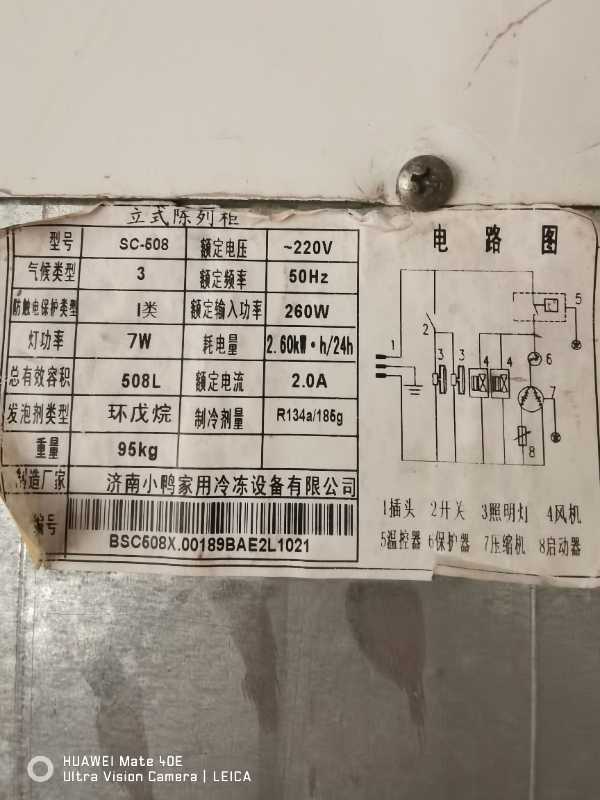 立式陈列柜
型号 SC-508 额定电压 ~220V
气候类型 3 额定频率 50Hz
防触电保护类型 I类 额定输入功率 260W
灯功率 7W 耗电量 2.60kW·h/24h
总有效容积 508L 额定电流 2.0A
发泡剂类型 环戊烷 制冷剂量 R134a/185g
重量 95kg
制造厂家 济南小鸭家用冷冻设备有限公司
编号
BSC508X.00189BAE2L1021
电路图
1
2
3 3
4 4
5
6
7
8
1插头 2开关 3照明灯 4风机
5温控器 6保护器 7压缩机 8启动器
HUAWEI Mate 40E
Ultra Vision Camera | LEICA